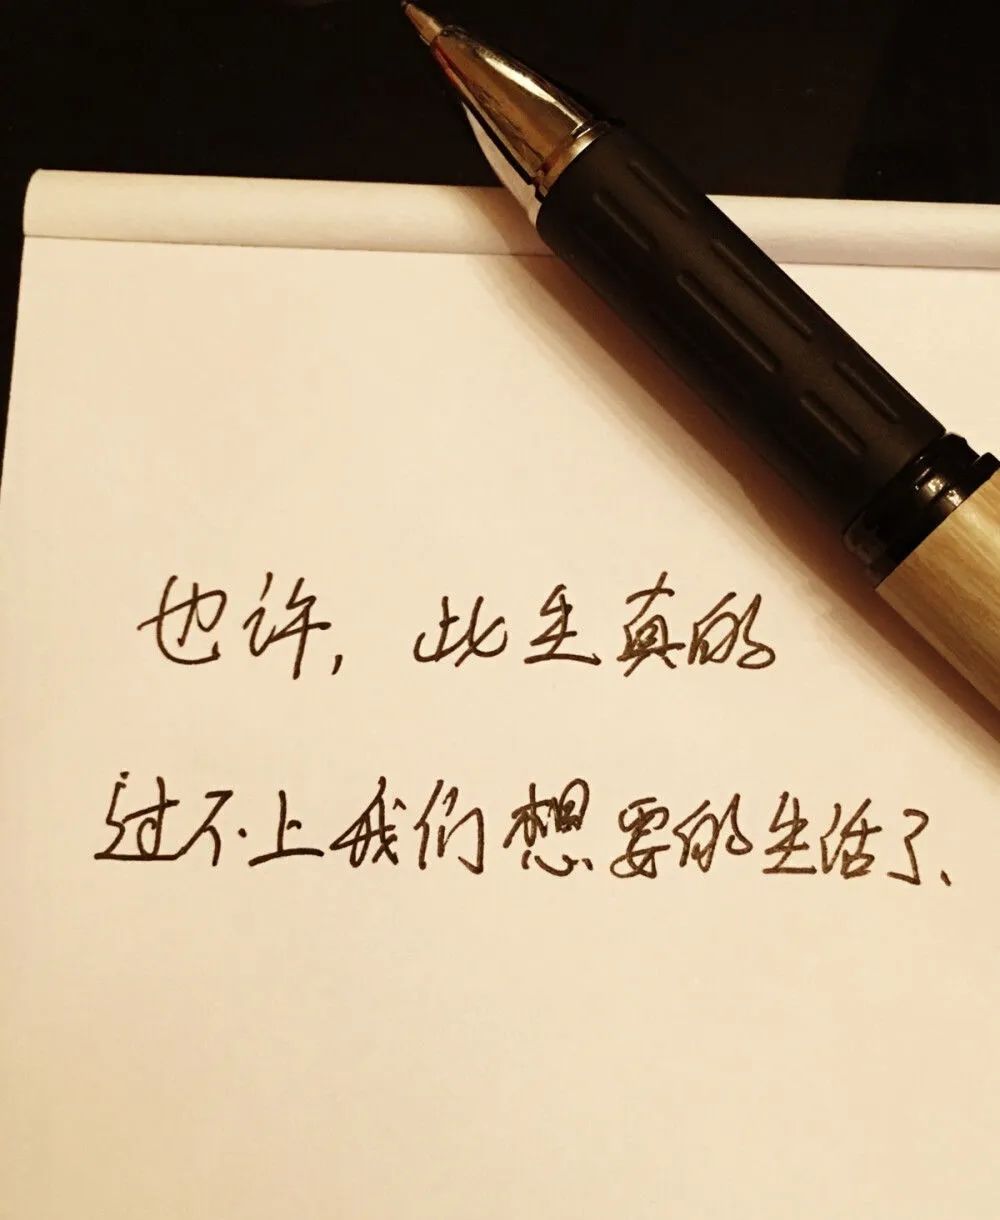 也许,此生真的
过不上我们想要的生活了、